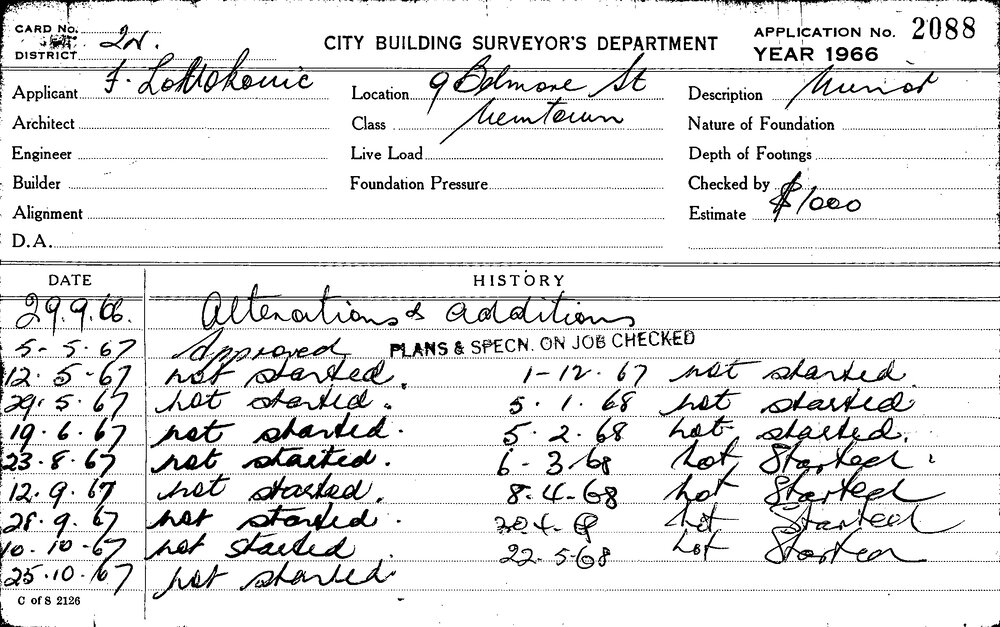 CARD No. 2N.
DISTRICT
CITY BUILDING SURVEYOR'S DEPARTMENT
APPLICATION No. 2088
YEAR 1966
Applicant F.
Location 9 Belmore St
Description Minor
Architect
Class Newtown
Nature of Foundation
Engineer
Live Load
Depth of Footings
Builder
Foundation Pressure
Checked by
Alignment
Estimate $1000
D.A.
DATE HISTORY
29.9.66. Alterations & additions
5-5.67 Approved PLANS & SPECN. ON JOB CHECKED
12.5-67 not started. 1-12.67 not started.
29.5.67 not started. 5.1.68 not started
19.6.67 not started. 5.2.68 not started.
23.8.67 not started. 6-3.68 not Started.
12.9.67 not started. 8.4-68 not Started
28.9.67 not started. not Started
10.10-67 not started 22.5-68 not Started
25.10.67 not started.
C of S 2126